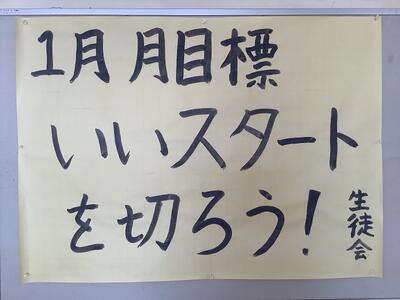 1月月目標
いいスタート
を切ろう!
生徒会